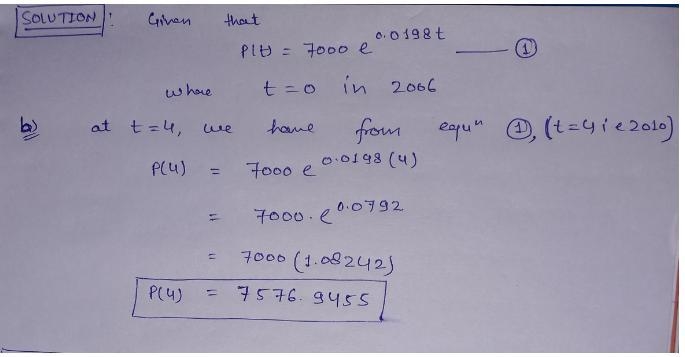 SOLUTION : Given that
P(t) = 7000 e^0.0198t —— ①
where t=0 in 2006
b) at t=4, we have from equⁿ ①, (t=4 i e 2010)
P(4) = 7000 e^0.0198(4)
= 7000 . e^0.0792
= 7000 (1.08242)
P(4) = 7576.9455